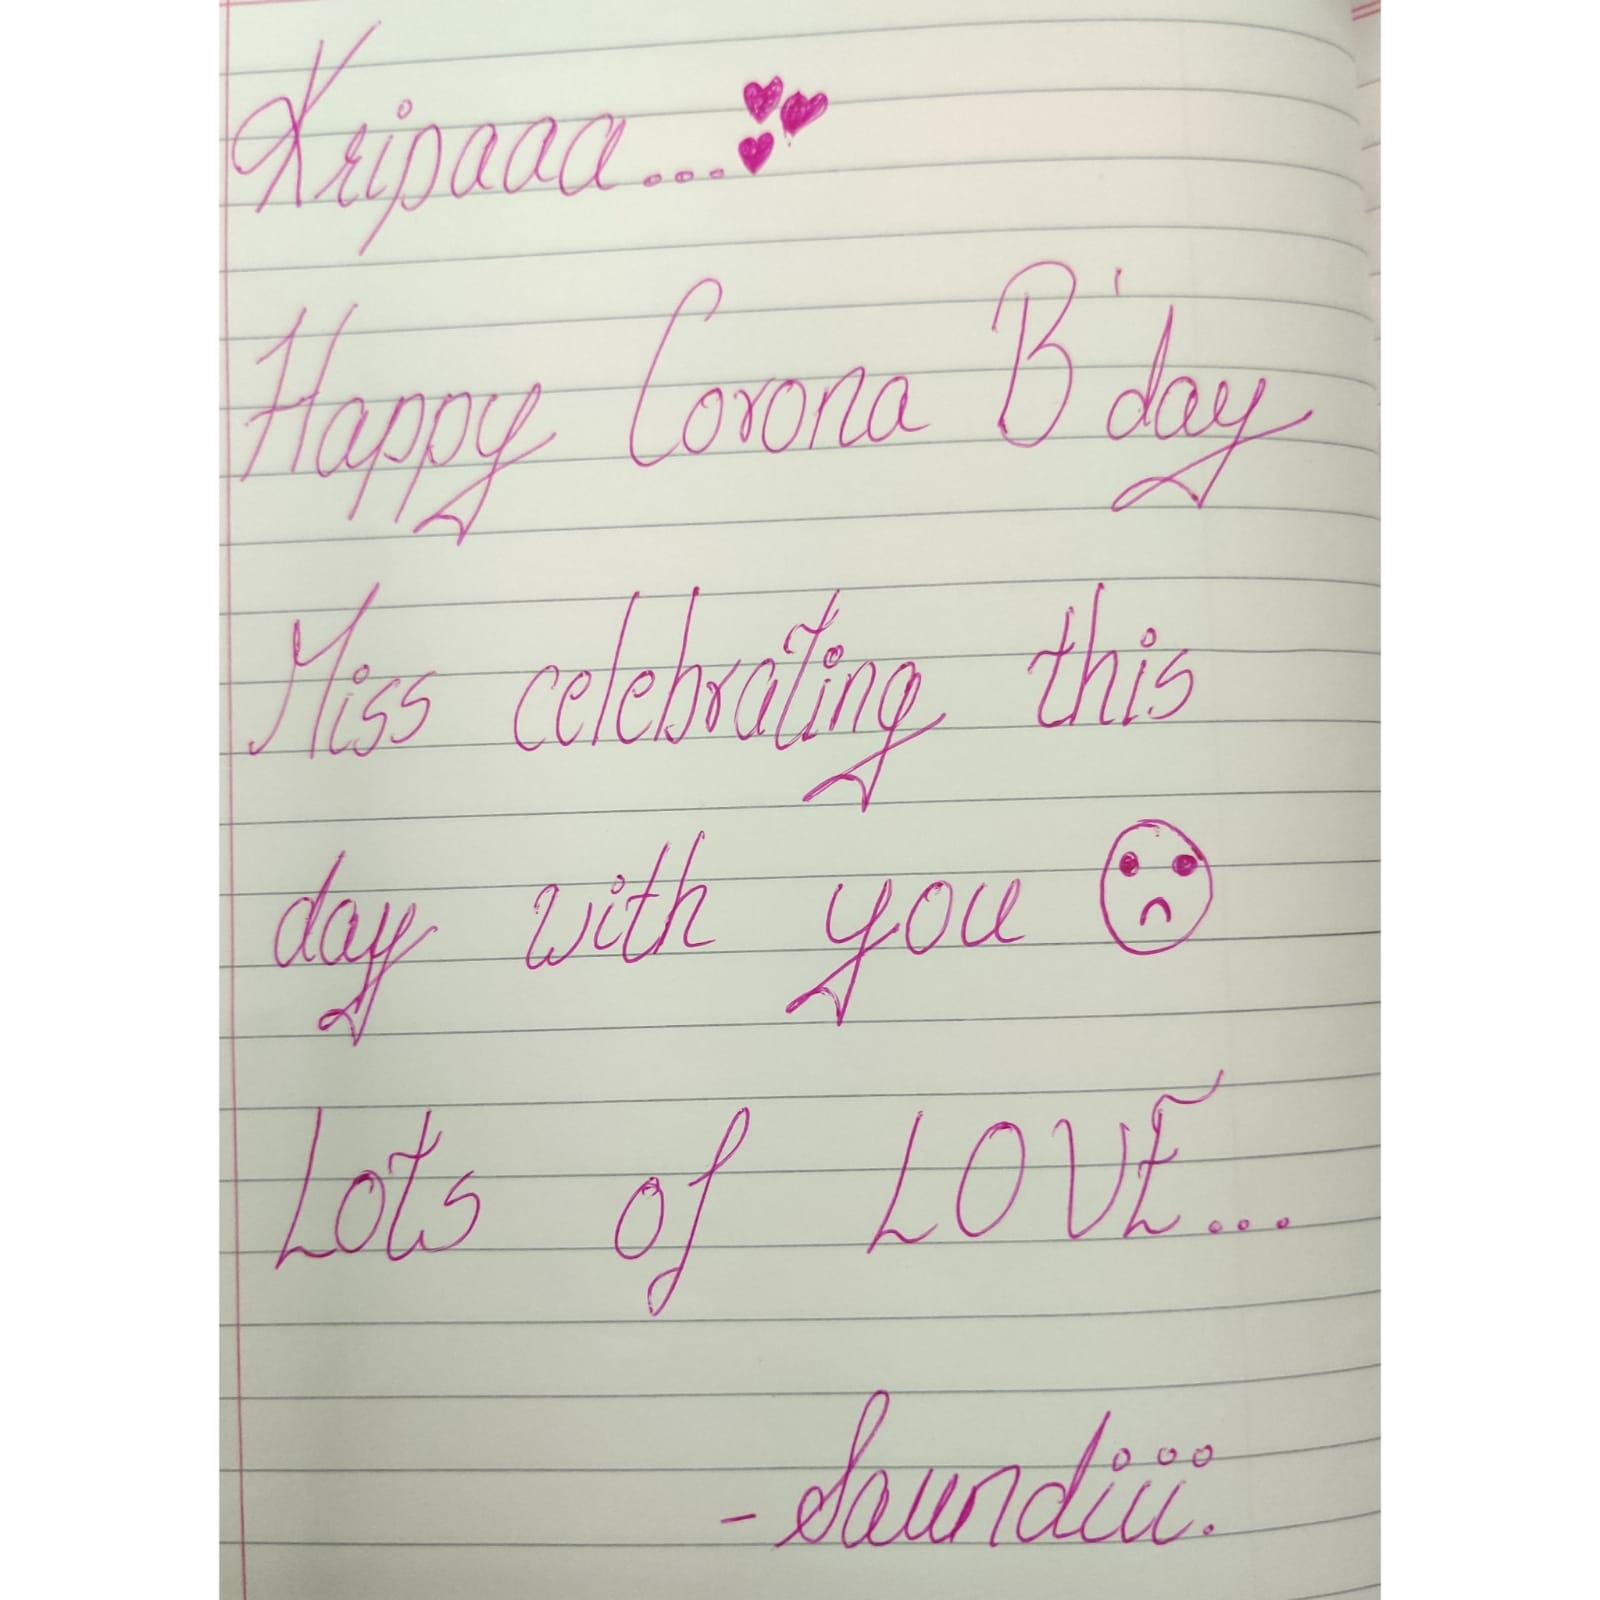 Kripaaa...
Happy Corona B'day
Miss celebrating this
day with you
Lots of LOVE...
- Saundiii.